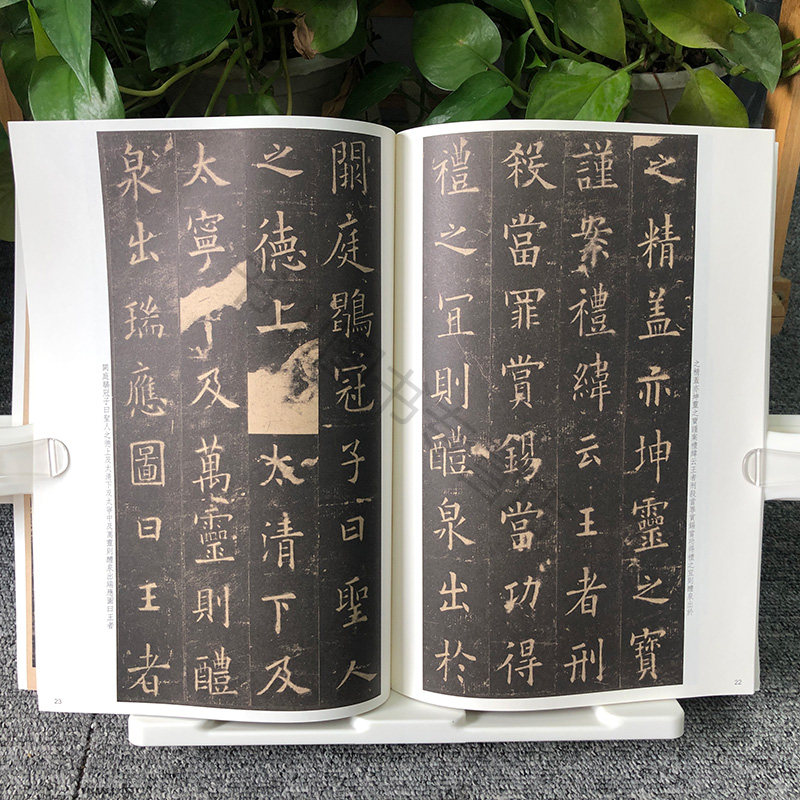 之精盖亦坤靈之寶
謹案禮緯云王者刑
殺當罪賞錫當功得
禮之宜則醴泉出於
之精蓋亦坤靈之寶謹案禮緯云王者刑殺當罪賞錫當功得禮之宜則醴泉出於
22
闕庭鶡冠子曰聖人
之德上太清下及
太寧及萬靈則醴
泉出瑞應圖曰王者
闕庭鶡冠子曰聖人之德上及太清下及太寧中及萬靈則醴泉出瑞應圖曰王者
23